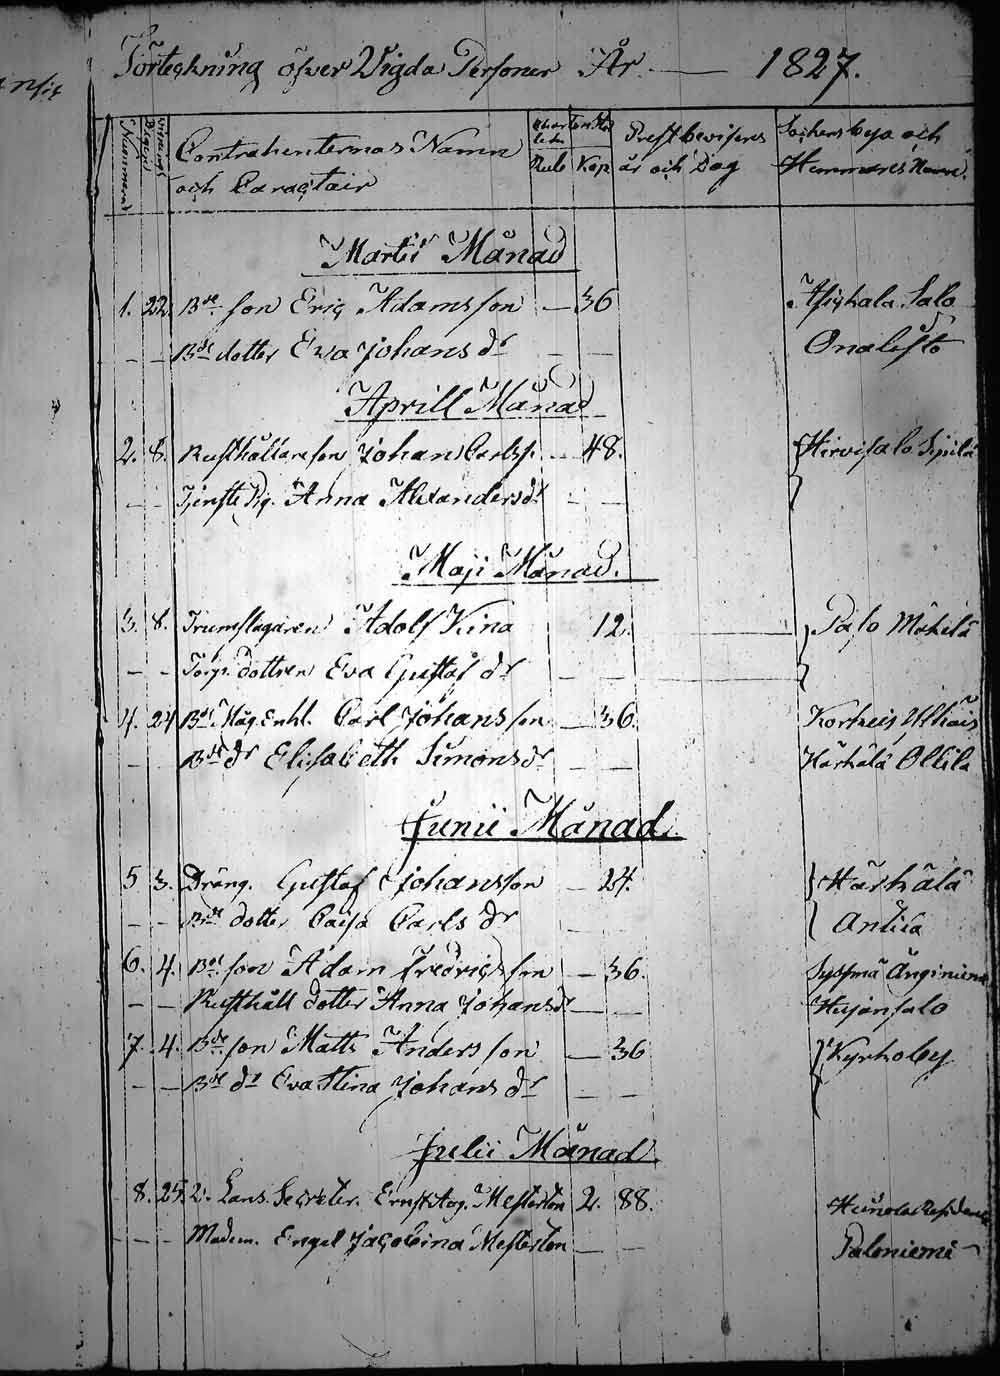 Förteckning öfver Vigda Personer År — 1827.
Nummern Vigning Dagen Contrahenternas Namn och Caracktair Rub Kop Prestbevisets år och Dag Sockens bya och Hemmanets Namn.
Martii Månad
1. 22. Bde son Eric Adamsson — 36 Asickala Salo
— — Bde dotter Eva Johans dr — — Onalisto
Aprill Månad
2. 8. Rusthållare son Johan Carlss. — 48. Hirvisalo Sipilä
— — Tjenste Pig. Anna Alexandersdr — —
Maji Månad.
3. 8. Trumslagaren Adolf Kina 12. Paso Mäkelä
— — Torp. dottren Eva Gustaf dr — —
4. 24 Bde Måg. Enkl. Carl Johansson — 36.
— — Bde dr Elisabeth Simonsdr — — Härkälä Ollila
Junii Månad.
5 3. Dräng. Gustaf Johansson — 24. Härkälä
— — Bde dotter Caisa Carls dr — Anttila
6. 4. Bde son Adam Fredricsson — 36. Sysmä
— — Rusthåll dotter Anna Johansdr — — Hujansalo
7. 4. Bde son Matts Andersson — 36 Kyrkoby
— — Bde dr Eva Stina Johans dr — —
Julii Månad.
8. 25. 2. Lans. Secreter. Ernst Aug. Mesterton 2. 88.
— — — Madem. Engel Jacobina Mesterton — — Paloniemi